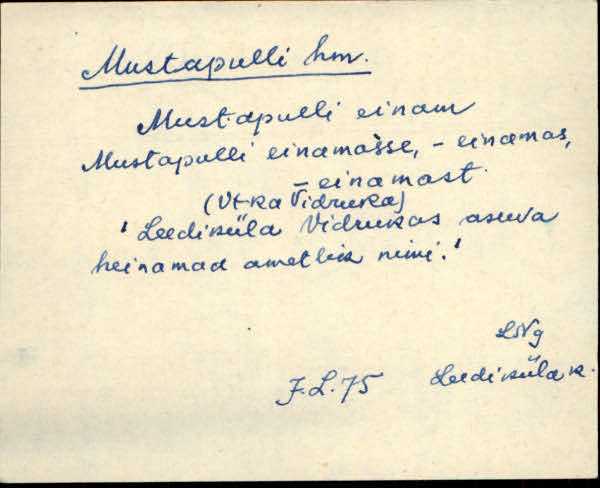 Mustapulli hm.
Mustapulli einam
Mustapulli einamàsse, - einamas,
- einamast
(Vt-ka Vidruka)
' Leediküla Vidrukas asuva
heinamad ametlik nimi.'
LNg
J.L.75 Leediküla k.